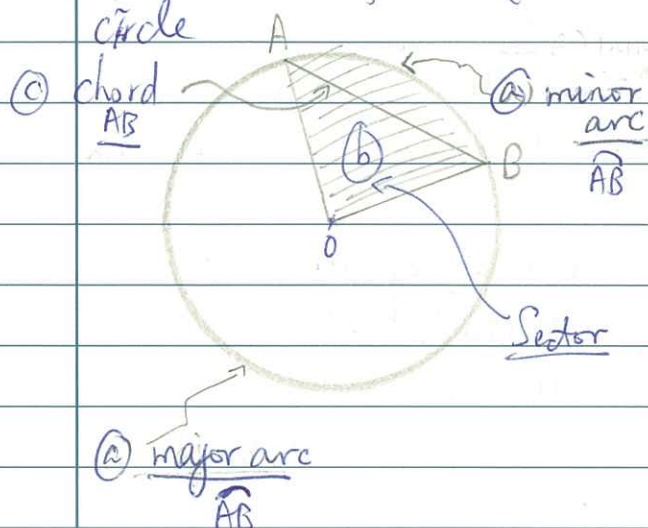 circle
A
ⓒ chord
AB
ⓐ minor
arc
AB
ⓑ
B
O
Sector
ⓐ major arc
AB